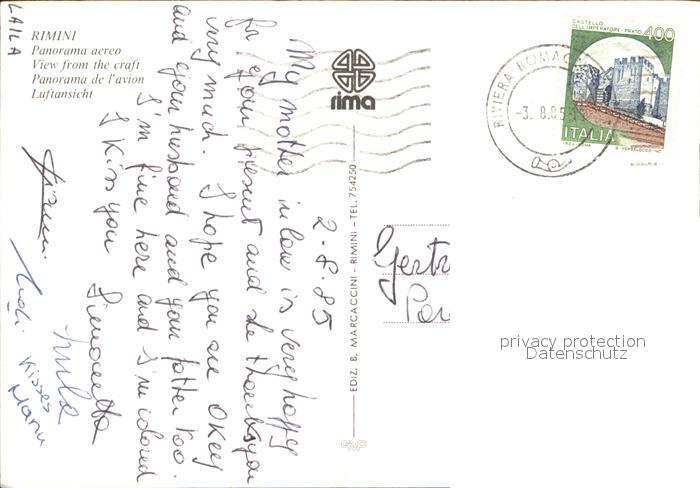 LAILA
RIMINI
Panorama aereo
View from the craft
Panorama de l'avion
Luftansicht
rima
CASTELLO
DELL'IMPERATORE - PRATO
400
ITALIA
RIVIERA ROMAG
-3. 8.85
2-8-85
My mother in low is very happy
for your present and she thanks you
very much. I hope you are okey
and your husband and your fatter too.
I'm fine here and I'm
I kiss you Simonetta
kisses
Manu
EDIZ. B. MARCACCINI - RIMINI - TEL. 754250
Gertr
privacy protection
Datenschutz